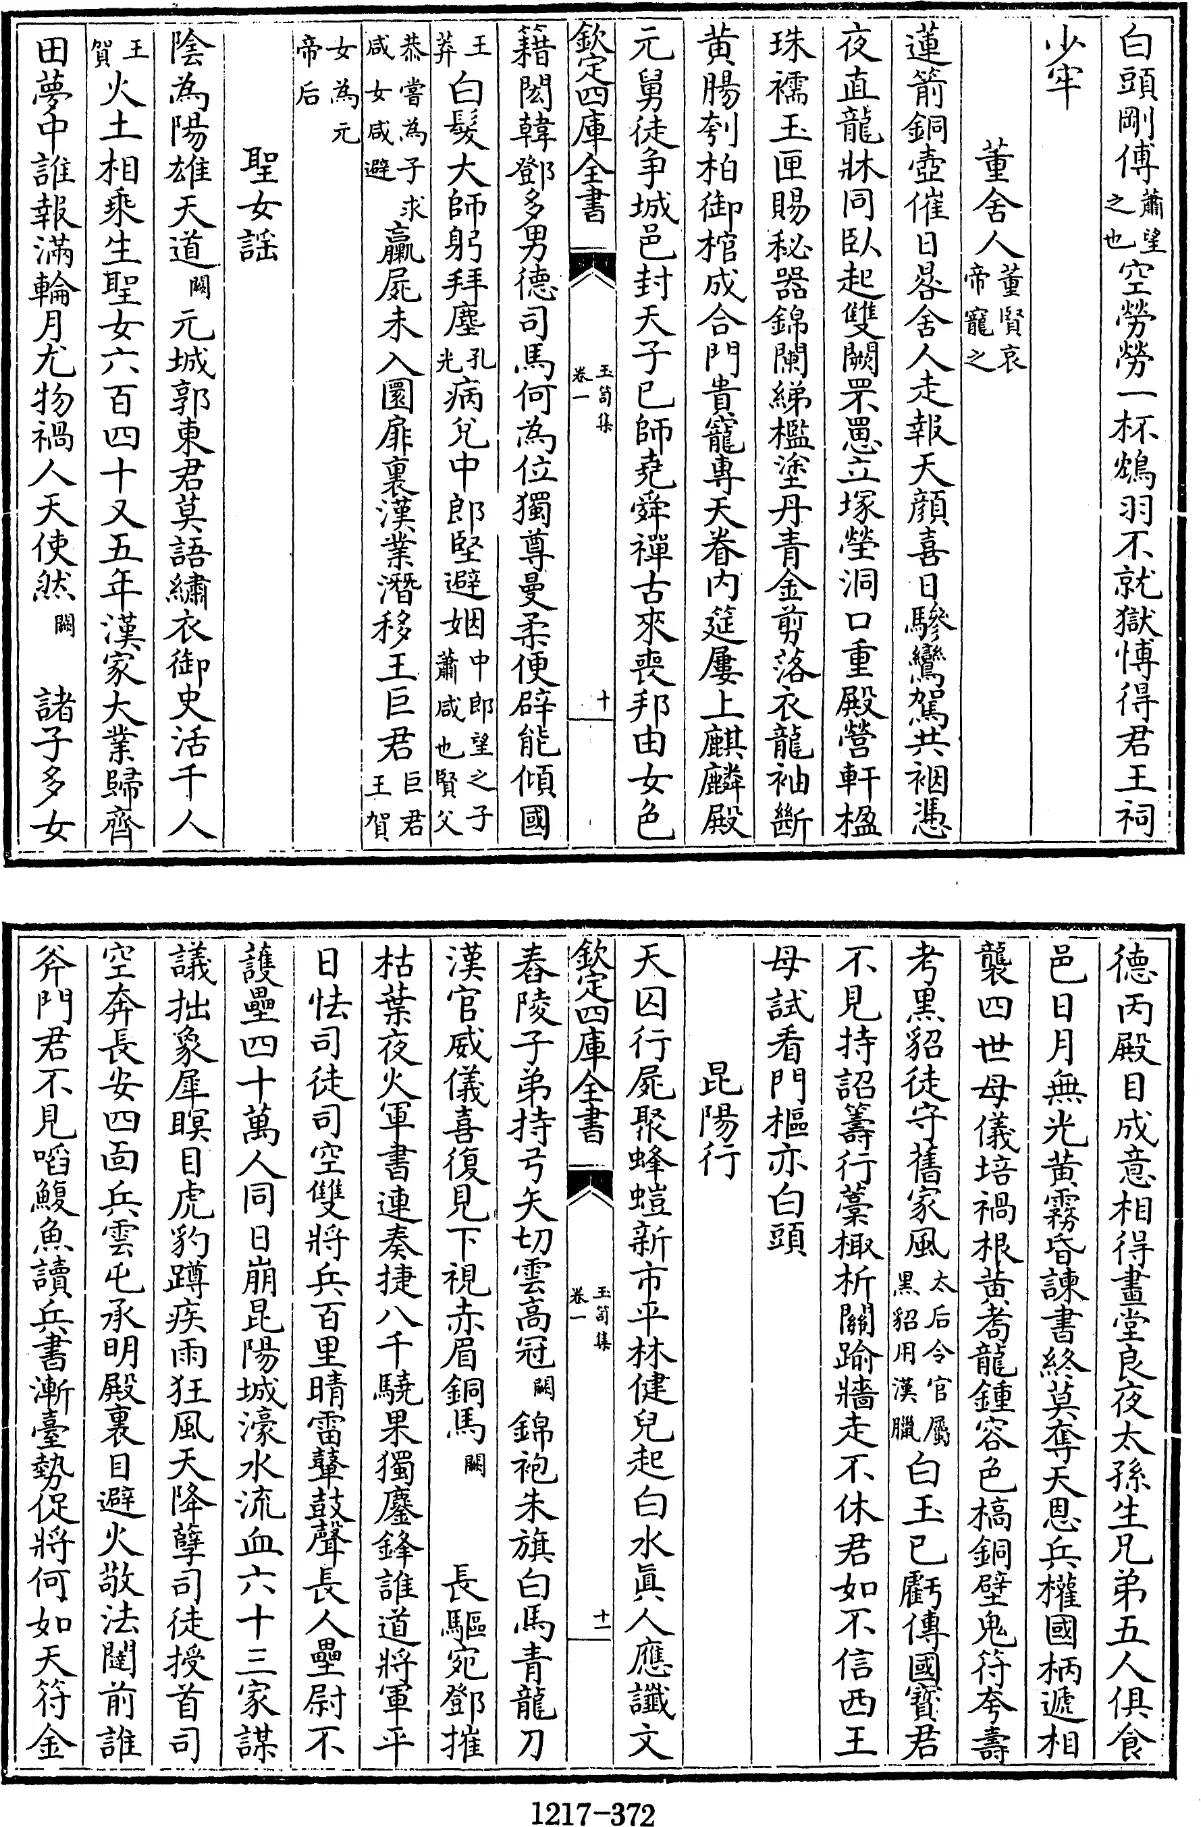 白頭剛傅蕭望之也空勞勞一杯鴆羽不就獄慱得君王祠
少牢
董舍人董賢哀帝寵之
蓮箭銅壺催日晷舍人走報天顔喜日驂鸞駕共裀憑
夜直龍牀同臥起雙闕罘罳立塚塋洞口重殿營軒楹
珠襦玉匣賜秘器錦闌綈檻塗丹青金剪落衣龍袖斷
黄腸刳柏御棺成合門貴寵專天眷内筵屢上麒麟殿
元舅徒争城邑封天子已師堯舜禪古來喪邦由女色
欽定四庫全書
玉笥集
卷一
十
籍閎韓鄧多男德司馬何為位獨尊曼柔便辟能傾國
王莽白髮大師躬拜塵孔光病免中郎堅避姻中郎望之子蕭咸也賢父
恭嘗為子求咸女咸避羸屍未入圜扉裏漢業潛移王巨君巨君王賀
女為元帝后
聖女謡
陰為陽雄天道闕元城郭東君莫語繡衣御史活千人
王賀火土相乘生聖女六百四十又五年漢家大業歸齊
田夢中誰報滿輪月尤物禍人天使然闕諸子多女
德丙殿目成意相得畫堂良夜太孫生兄弟五人俱食
邑日月無光黄霧昏諫書終莫奪天恩兵權國柄遞相
襲四世母儀培禍根黄耇龍鍾容色槁銅壁鬼符夸壽
考黑貂徒守舊家風太后令官屬黑貂用漢臘白玉已虧傳國寳君
不見持詔籌行藁棷析關踰牆走不休君如不信西王
母試看門樞亦白頭
昆陽行
天囚行屍聚蜂螘新市平林健兒起白水眞人應讖文
欽定四庫全書
玉笥集
卷一
十一
舂陵子弟持弓矢切雲高冠闕錦袍朱旗白馬青龍刀
漢官威儀喜復見下視赤眉銅馬闕長驅宛鄧摧
枯葉夜火軍書連奏捷八千驍果獨鏖鋒誰道將軍平
日怯司徒司空雙將兵百里晴雷鼙鼓聲長人壘尉不
護壘四十萬人同日崩昆陽城濠水流血六十三家謀
議拙象犀瞑目虎豹蹲疾雨狂風天降孽司徒授首司
空奔長安四面兵雲屯承明殿裏目避火敬法闥前誰
斧門君不見啗鰒魚讀兵書漸臺勢促將何如天符金
1217-372